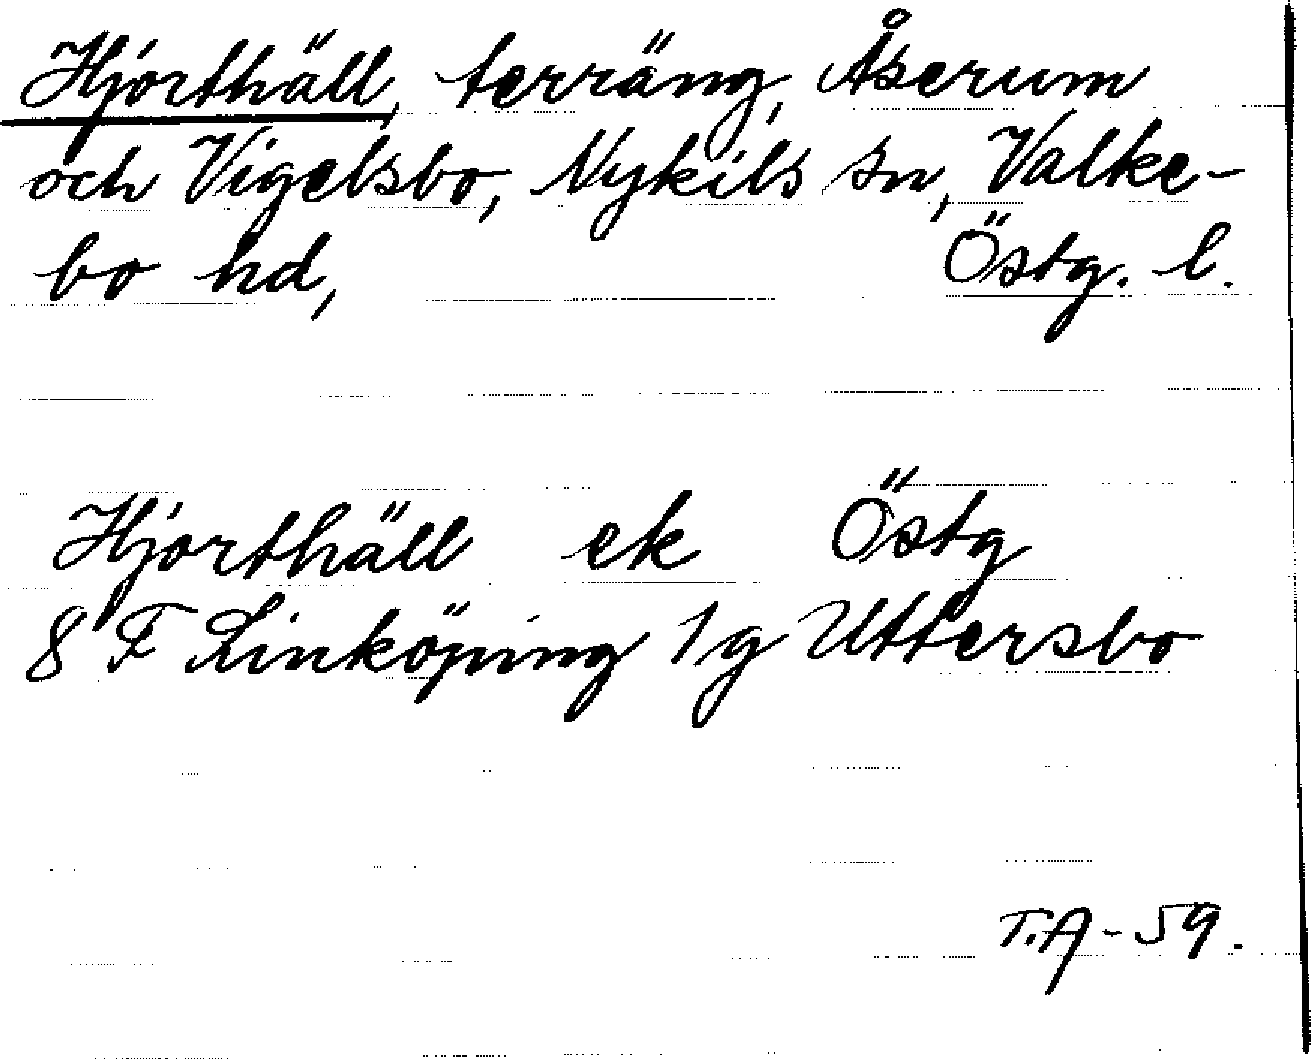 Hjorthäll, terräng, Åserum
och Vigelsbo, Nykils sn, Valke-
bo hd, Östg. l.
Hjorthäll ek Östg
8 F Linköping 1 g Uttersbo
T.A-59.